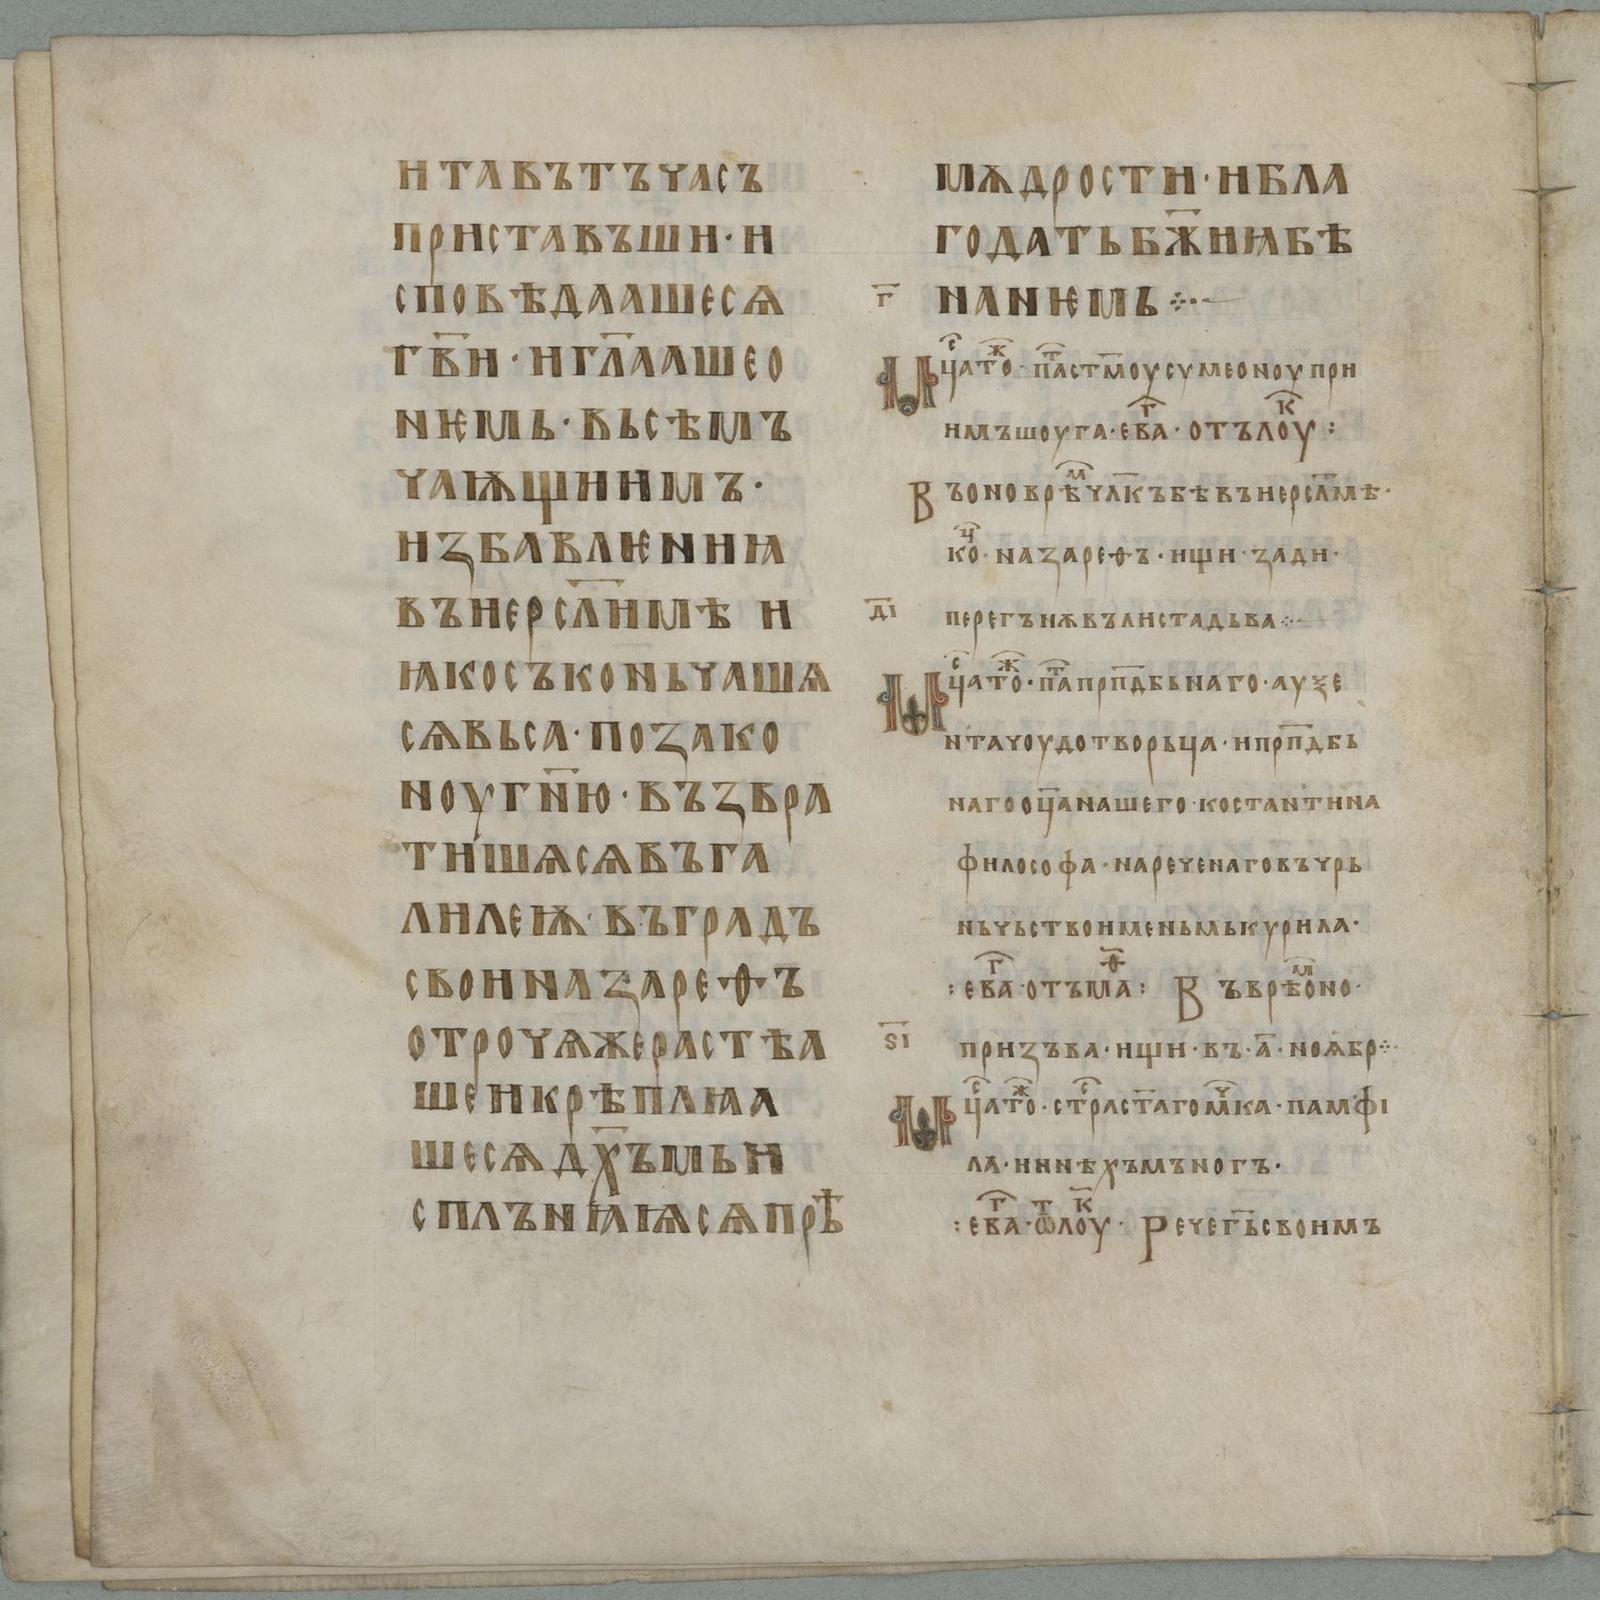 и та въ тъ часъ
приставъши · и
сповѣдаашесѧ
гв҃и · и гл҃аашео
нѥмь · вьсѣмъ
чаѭщиимъ ·
избавлѥниꙗ
въ иерсл҃имѣ и
ꙗко съконьчашѧ
сѧ вьса · по зако
ноу гн҃ю · възвра
тишѧсѧ въ га
лилеѭ · въ градъ
свои назареѳъ
отрочѧ же растѣа
ше и крѣплꙗа
шесѧ дх҃ъмь и
сплънꙗѧсѧ прѣ
мѫдрости · и бла
годать бж҃иꙗ бѣ
г҃ на нѥмь ⁘-
Мⷭ҇ца тⷤо · па̅ ст҃моу сумеоноу при
имъшоуга · еваⷢ · отъ лоуⷦ :
Въ оно врѣⷨ члк҃ъ бѣ въ иерсл҃мѣ ·
коⷰ · назареѳъ · ищи · зади ·
д҃і перегънѫвъ листа дьва ⁘-
Мⷭ҇ца тⷤо · па̅ прп҃дбьнаго · ауѯе
нта чоудотворьца · и прп҃дбь
наго оц҃а нашего · костантина
философа · нареченаго въ чрь
ньчьствѣ именьмь курила ·
: еваⷢ · отъ маⷴ : Въ врѣⷨ оно ·
ѕ҃і призъва · ищи · въ · а҃ · ноѧбр ⁘-
Мⷭ҇ца тⷤо · стрⷭ҇аст҃аго мⷱ҇ка · памфі
ла · и инѣхъ мъногъ ·
: еваⷢ · ѿ лоуⷦ · Рече гь҃ своимъ